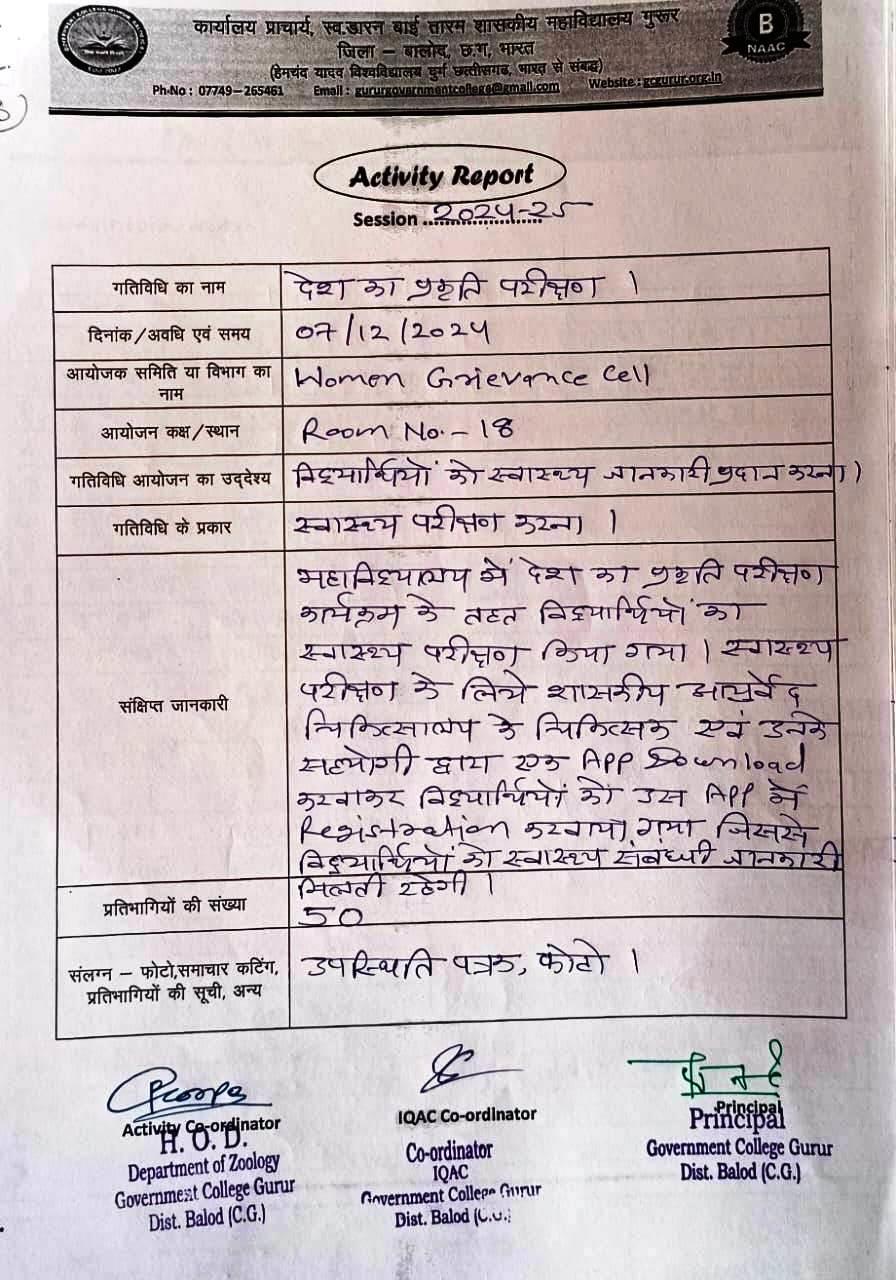 कार्यालय प्राचार्य, स्व.डारन बाई तारम शासकीय महाविद्यालय गुरूर
जिला – बालोद, छ.ग, भारत
(हेमचंद यादव विश्वविद्यालय दुर्ग छत्तीसगढ़, भारत से संबद्ध)
Ph.No : 07749–265461 Email : gururgovernmentcollege@gmail.com Website : gcgurur.org.in
B
NAAC
Activity Report
Session 2024-25
गतिविधि का नाम देश का प्रकृति परीक्षण ।
दिनांक/अवधि एवं समय 07/12/2024
आयोजक समिति या विभाग का नाम Women Grievance Cell
आयोजन कक्ष/स्थान Room No.- 18
गतिविधि आयोजन का उद्देश्य विद्यार्थियों को स्वास्थ्य जानकारी प्रदान करना।
गतिविधि के प्रकार स्वास्थ्य परीक्षण करना ।
संक्षिप्त जानकारी
महाविद्यालय में देश का प्रकृति परीक्षण
कार्यक्रम के तहत विद्यार्थियों का
स्वास्थ्य परीक्षण किया गया । स्वास्थ्य
परीक्षण के लिये शासकीय आयुर्वेद
चिकित्सालय के चिकित्सक एवं उनके
सहयोगी द्वारा एक APP Download
करवाकर विद्यार्थियों को उस APP में
Registration करवाया गया जिससे
विद्यार्थियों को स्वास्थ्य संबंधी जानकारी
मिलती रहेगी ।
प्रतिभागियों की संख्या 50
संलग्न – फोटो,समाचार कटिंग,
प्रतिभागियों की सूची, अन्य
उपस्थिति पत्रक, फोटो ।
Activity Co-ordinator
H. O. D.
Department of Zoology
Government College Gurur
Dist. Balod (C.G.)
IQAC Co-ordinator
Co-ordinator
IQAC
Government College Gurur
Dist. Balod (C.G.)
Principal
Principal
Government College Gurur
Dist. Balod (C.G.)